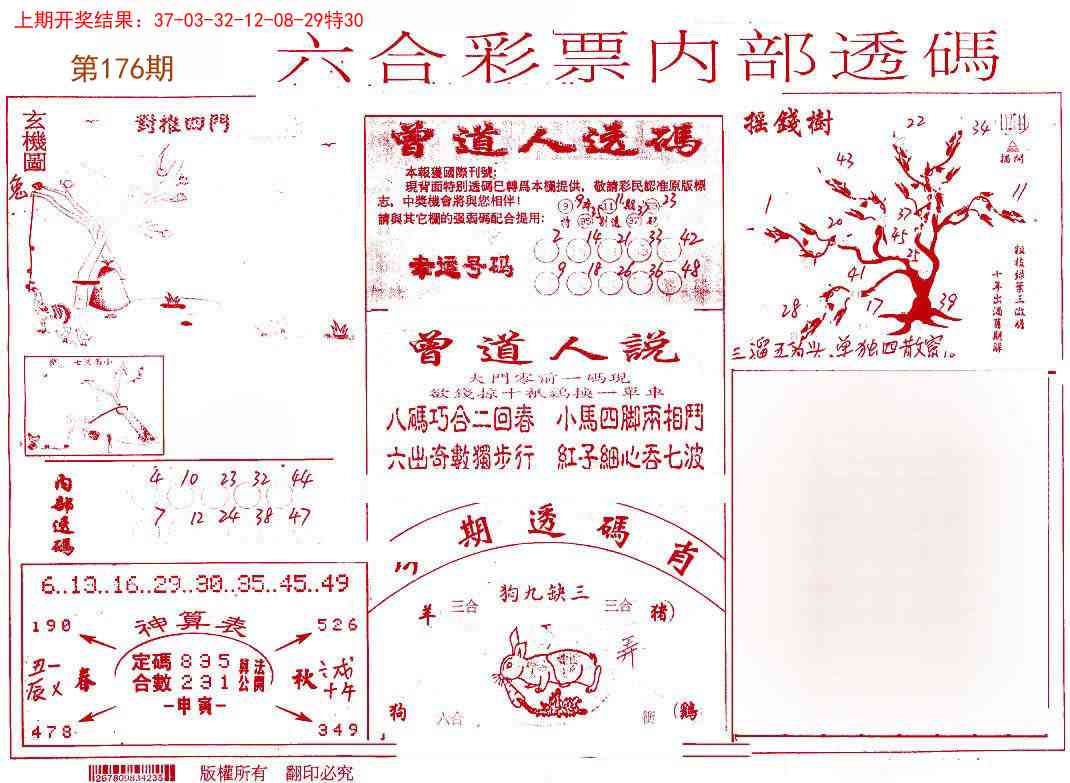 上期开奖结果：37-03-32-12-08-29特30
第176期
六合彩票内部透碼
玄機圖
對推四門
兔
曾道人透碼
本報獲國際刊號:
現背面特别透碼巳轉爲本欄提供，敬請彩民認准原版標
志，中獎機會將與您相伴！
請與其它欄的强弱碼配合提用:
幸运号码
2 14 21 33 42
9 18 26 36 48
搖錢樹
22 34
43
11
1
20 37
45
25
41
28 17 39
曾道人説
大門零前一碼現
欲錢掠十紙鷄換一單車
八碼巧合二回春 小馬四脚兩相鬥
六出奇數獨步行 紅子細心吞七波
内部透碼
4 10 23 32 44
7 12 24 38 47
期透碼肖
6..13..16..29..30..35..45..49
神算表
190 526
丑一 春
辰
定碼 835
合數 231
算法公開
秋
478 349
一申寅一
狗九缺三
羊 三合 三合 猪
弄
狗 六合 (鷄)
267809834235
版權所有 翻印必究